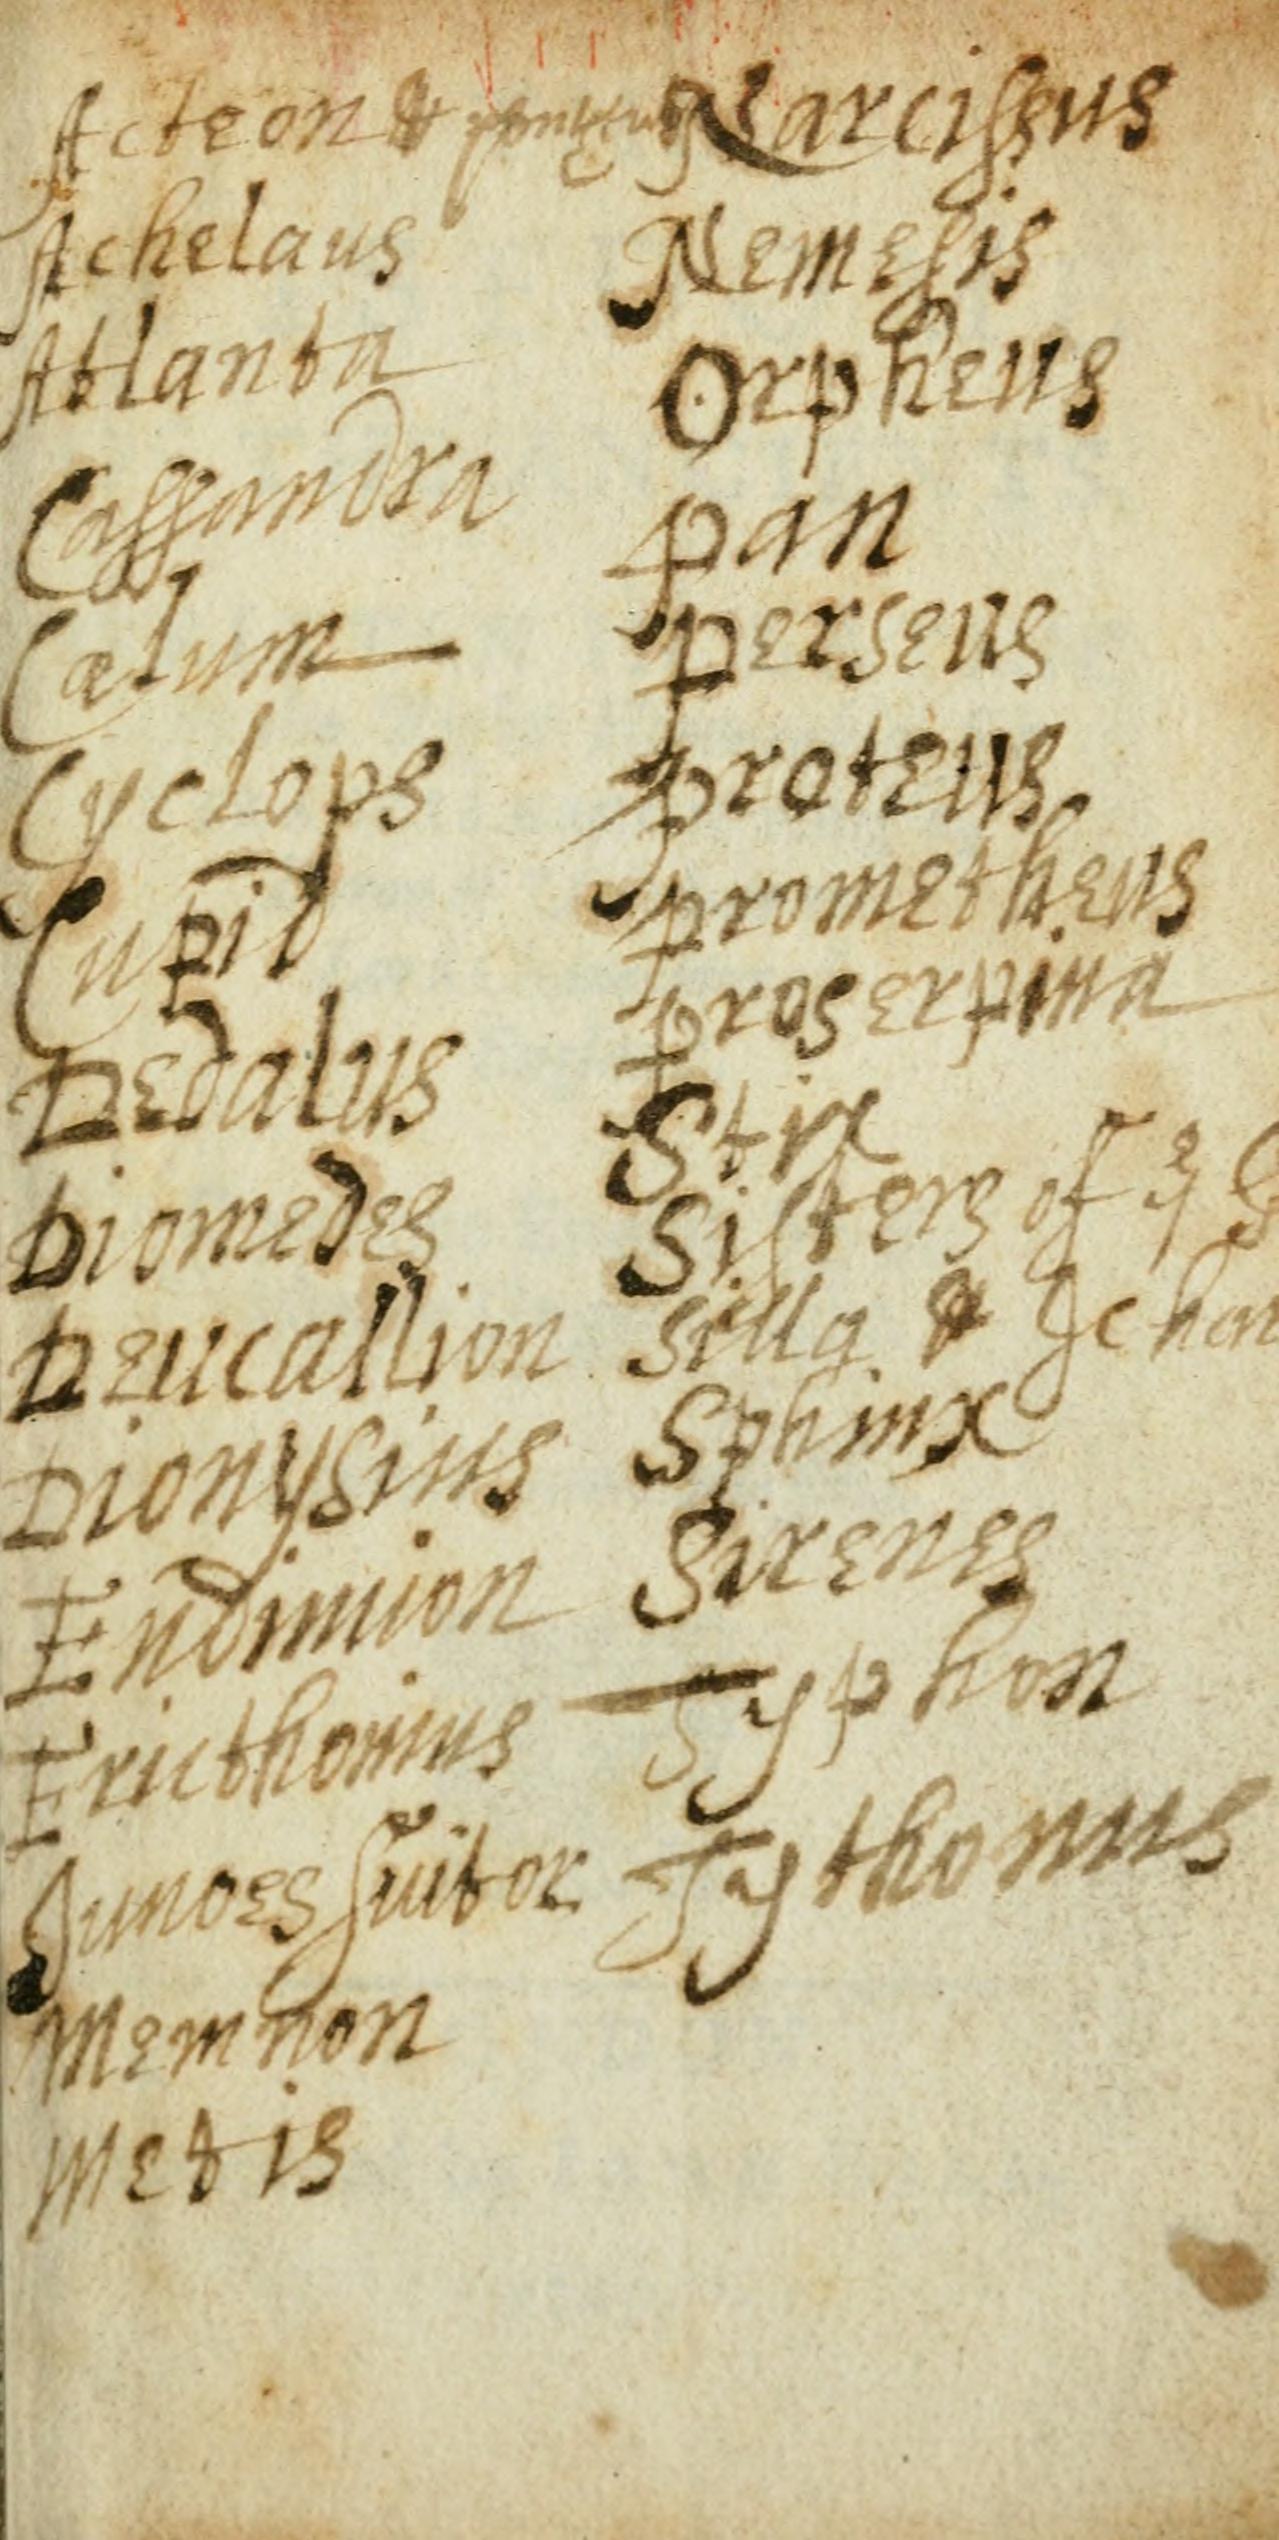 Acteon & pentheus
Achelaus
Atlanta
Cassandra
Cælum
Cyclops
Cupid
Dedalus
Diomedes
Deucallion
Dionysius
Endimion
Ericthonius
Junoes suitor
Memnon
Metis
Narcissus
Nemesis
Orpheus
pan
perseus
proteus
prometheus
proserpina
Stix
Sisters of ye
Silla &
Sphinx
Sirenes
Typhon
Tythonus